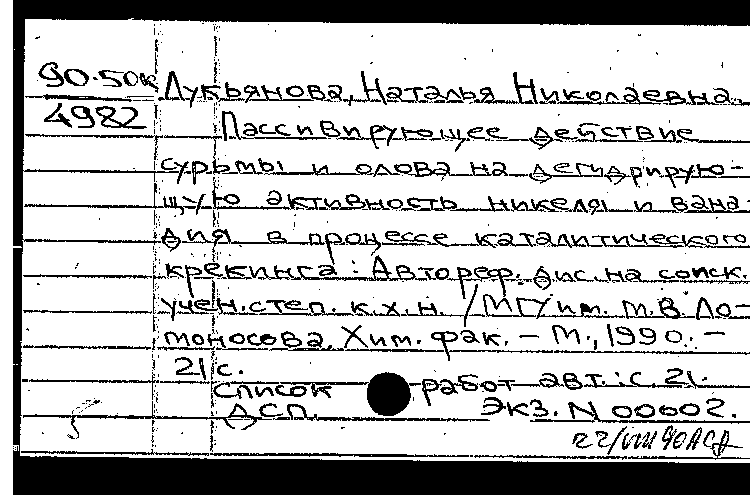 90-50к Лукьянова, Наталья Николаевна.
4982 Пассивирующее действие
сурьмы и олова на дегидрирую-
щую активность никеля и вана-
дия в процессе каталитического
крекинга: Автореф. дис. на соиск.
учен. степ. к.х.н. / МГУ им. М.В. Ло-
моносова. Хим. фак. – М., 1990. –
21 с.
Список работ авт.: с. 21.
ДСП. Экз. N 00602.